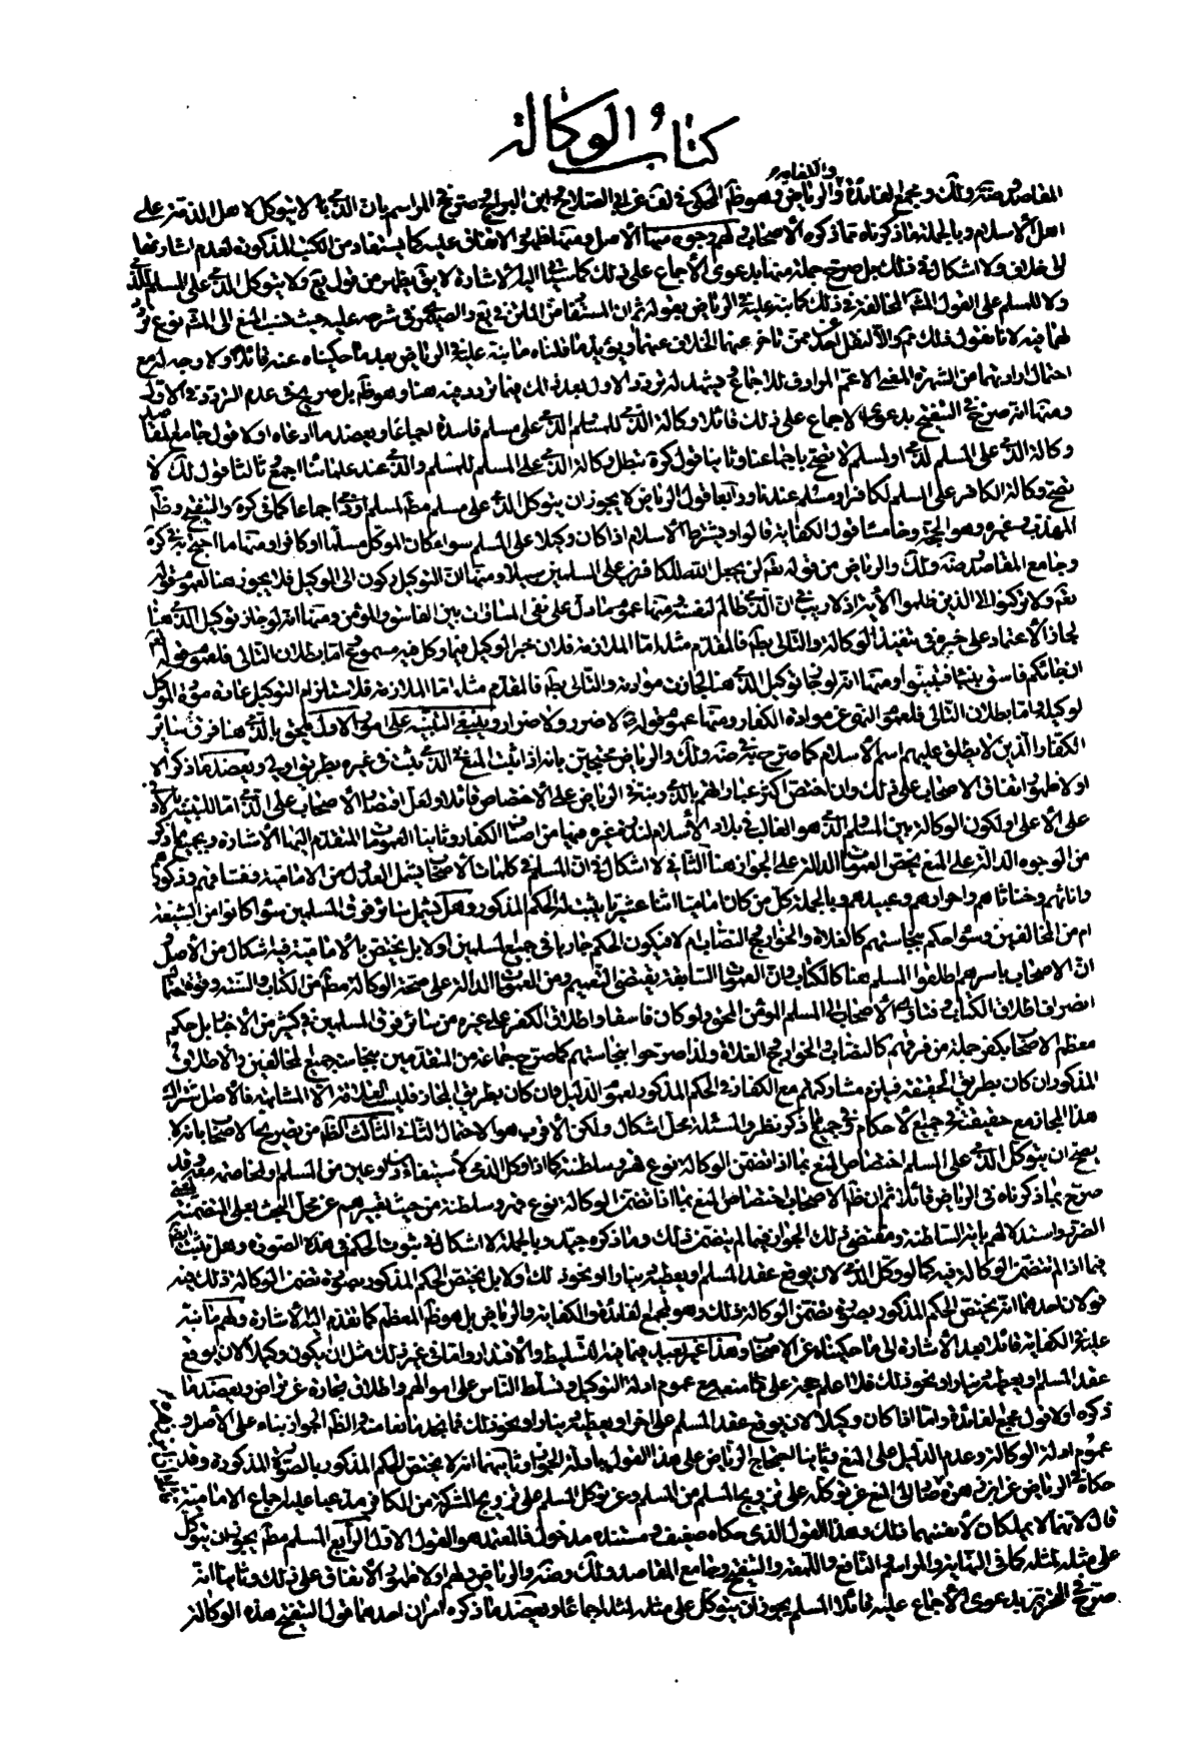 كتاب الوكالة
والكفاية
المقاصد وضه ولك ومجمع الفائدة والرياض وهو ظ المحكى فى لف عن ابى الصلاح وابن البراج وصرح فى المراسم بان الذمى لا يتوكل لاهل الذمة على
اهل الاسلام وبالجملة ما ذكرناه مما ذكره الأصحاب ولهم وجوه منها الأصل ومنها ظهور الاتفاق عليه كما يستفاد من الكتب المذكورة لعدم اشارتها
الى خلاف ولا اشكال فى ذلك بل صرح جملة منها بدعوى الأجماع على ذلك كما ستأتى اليه الاشارة لا يق يظهر من قول يع ولا يتوكل الذمى على المسلم للذمى
ولا للمسلم على القول المشهور المخالفة فى ذلك كما نبه عليه فى الرياض بقوله ثم ان المستفاد من الماتن فى يع والصيمرى فى شرحه حيث نسب المنع الى المشهور نوع تردد
لهما فيه لانا نقول ذلك مم والا لنقل احد ممن تاخر عنهما الخلاف عنهما ويؤيد ما قلناه ما نبه عليه فى الرياض بعد ما حكيناه عنه قائلا ولا وجه له مع
احتمال ارادتهما من الشهرة المعنى الاعم المرادف للاجماع ويشهد له تردد الاول بعد ذلك فيما تردد فيه هنا وهو ظ بل صريح فى عدم التردد فى الاول
ومنها انه صرح فى التنقيح بدعوى الاجماع على ذلك قائلا وكالة الذمى للمسلم او الذمى على مسلم فاسدة اجماعا ويعضد ما ادعاه اولا قول جامع المقاصد
وكالة الذمى على المسلم لذمى او لمسلم لا تصح باجماعنا وثانيا قول كره تبطل وكالة الذمى على المسلم للمسلم والذمى عند علمائنا اجمع وثالثا قول لك لا
تصح وكالة الكافر على المسلم لكافر او مسلم عندنا ورابعا قول الرياض لا يجوز ان يتوكل الذمى على مسلم مط لمسلم او ذمى اجماعا كما فى كره والتنقيح وظ
المهذب وغيره وهو الحجة وخامسا قول الكفاية قالوا ويشترط الاسلام اذا كان وكيلا على المسلم سواء كان الموكل مسلما او كافرا ومنها ما احتج به فى كره
وجامع المقاصد وضه ولك والرياض من قوله تع لن يجعل الله للكافرين على المسلمين سبيلا ومنها ان التوكيل ركون الى الوكيل فلا يجوز هنا لعموم قوله
تع ولا تركنوا الى الذين ظلموا الأية اذ لا ريب فى ان الذمى ظالم لنفسه ومنها عموم ما دل على نفى المساواة بين الفاسق والمؤمن ومنها انه لو جاز توكيل الذمى هنا
لجاز الاعتماد على خبره فى تنفيذ الوكالة والتالى بط فالمقدم مثله اما الملازمة فلان خبر الوكيل فيما وكل فيه مسموع اما بطلان التالى فلعموم قوله تع
ان جائكم فاسق بنبأ فتبينوا ومنها انه لو جاز توكيل الذمى هنا لجازت موادته والتالى بط فالمقدم مثله اما الملازمة فلاستلزام التوكيل عادة مودة الموكل
لوكيله واما بطلان التالى فلعموم النهى عن موادة الكفار ومنها عموم قوله لا ضرر ولا ضرار وينبغى التنبيه على امور الاول يلحق بالذمى هنا فرق سائر
الكفار الذين لا يطلق عليهم اسم الأسلام كما صرح به فى ضه ولك والرياض محتجين بانه اذا ثبت المنع فى الذمى يثبت فى غيره بطريق اولى ويعضد ما ذكروه
اولا ظهور اتفاق الاصحاب على ذلك وان اختص اكثر عباراتهم بالذمى ونبه فى الرياض على الأختصاص قائلا ولعل اقتصار الأصحاب على الذمى اما للتنبيه بالادنى
على الأعلى او لكون الوكالة بين المسلم والذمى هو الغالب فى بلاد الأسلام لندرة غيره فيها من اصناف الكفار وثانيا العمومات المتقدم اليها الأشارة وبجميع ما ذكر
من الوجوه الدالة على المنع يخص العمومات الدالة على الجواز هنا الثانى لا اشكال فى ان المسلم فى كلمات الاصحاب يشمل العدول من الامامية وفساقهم وذكورهم
واناثهم وخناثاهم واحرارهم وعبيدهم وبالجملة كل من كان اماميا اثنا عشريا يثبت له الحكم المذكور وهل يشمل سائر فرق المسلمين سواء كانوا من الشيعة
ام من المخالفين وسواء حكم بنجاستهم كالغلاة والخوارج والنصاب ام لا فيكون الحكم جاريا فى جميع المسلمين اولا بل يختص بالأمامية فيه اشكال من الأصل
ان الاصحاب باسرهم اطلقوا المسلم هنا كالكتاب وان العمومات السابقة يقتضى التعميم ومن العمومات الدالة على صحة الوكالة مط من الكتاب والسنة
انصراف اطلاق الكتاب وفتاوى الأصحاب الى المسلم المؤمن المحق ولو كان فاسقا واطلاق الكفر على غيره من سائر فرق المسلمين فى كثير من الأخبار بل حكم
معظم الاصحاب بكفر جملة من فرقهم كالنصاب والخوارج والغلاة ولذا صرحوا بنجاستهم كما صرح جماعة من المتقدمين بنجاسة جميع المخالفين والاطلاق
المذكور ان كان بطريق الحقيقة فيلزم مشاركتهم مع الكفار فى الحكم المذكور لعموم الدليل وان كان بطريق المجاز فليست العلاقة الا المشابهة فالأصل اشتراك
هذا المجاز مع حقيقته فى جميع الأحكام وفى جميع ما ذكر نظر والمسئلة محل اشكال ولكن الأقرب هو الاحتمال الثانى الثالث الظ من تصريح الاصحاب بانه لا
يصح ان يتوكل الذمى على المسلم اختصاص المنع بما اذا تضمن الوكالة نوع قهر وسلطنة كما اذا وكل الذمى لأستيفاء دين او عين من المسلم او لمخاصمة معه وقد
صرح بما ذكرناه فى الرياض قائلا ثم ان ظ الاصحاب اختصاص المنع بما اذا تضمنت الوكالة نوع قهر وسلطنة من حيث تعبيرهم عن محل البحث بعلى المتضمنة لمعنى
الضرر واستدلالهم باية السلطنة ومقتضى ذلك الجواز فيما لم يتضمن ذلك وما ذكره جيد وبالجملة لا اشكال فى ثبوت الحكم فى هذه الصورة وهل يثبت ايضا
فيما اذا لم تتضمن الوكالة فيه كما لو وكل الذمى لان يوقع عقد المسلم او يعطيه دينارا ونحو ذلك اولا بل يختص الحكم المذكور بصورة تضمن الوكالة ذلك فيه
قولان احدهما انه يختص الحكم المذكور بصورة تضمن الوكالة ذلك وهو لمجمع الفائدة والكفاية والرياض بل هو ظ المعظم كما تقدم اليه الأشارة ولهم ما نبه
عليه فى الكفاية قائلا بعد الأشارة الى ما حكيناه عن الاصحاب وهذا غير بعيد فيما فيه التسليط والأقتدار واما فى غير ذلك مثل ان يكون وكيلا لان يوقع
عقد المسلم او يعطيه دينارا ونحو ذلك فلا اعلم حجة على منعه مع عموم ادلة التوكيل وتسلط الناس على اموالهم واطلاق تجارة عن تراض ويعضد ما
ذكره اولا قول مجمع الفائدة واما اذا كان وكيلا لان يوقع عقد المسلم على اخر او يعطيه دينارا ونحو ذلك فما نجد مانعا منه والظ الجواز بناء على الأصل و
عموم ادلة الوكالة وعدم الدليل على المنع وثانيا احتجاج الرياض على هذا القول بادلة الجواز وثانيهما انه لا يختص الحكم المذكور بالصورة المذكورة وقد
حكاه فى الرياض عن ابن زهرة مضافا الى المنع عن توكله على تزويج المسلم من المسلم وعن توكل المسلم على تزويج المشركة من الكافر مدعيا عليه اجماع الامامية
قال لانهما لا يملكان لأنفسهما ذلك وهذا القول الذى حكاه ضعيف ومستنده مدخول فالمعتمد هو القول الاول الرابع المسلم مط يجوز ان يتوكل
على مثله لمثله كما فى النهاية والمراسم والنافع واللمعة والتنقيح وجامع المقاصد ولك وضه والرياض ولهم اولا ظهور الأتفاق على ذلك وثانيا انه
صرح فى التحرير بدعوى الأجماع عليه قائلا المسلم يجوز ان يتوكل على مثله لمثله اجماعا ويعضد ما ذكره امران احدهما قول التنقيح هذه الوكالة